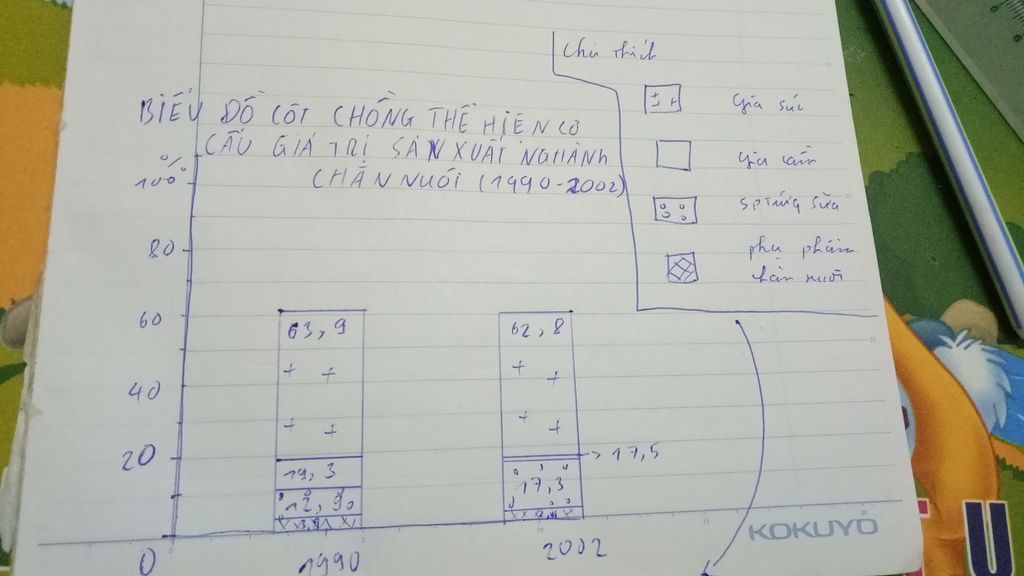 Chú thích
BIỂU ĐỒ CỘT CHỒNG THỂ HIỆN CƠ
CẤU GIÁ TRỊ SẢN XUẤT NGHÀNH
CHĂN NUÔI (1990-2002)
Gia súc
Gia cầm
SP trứng sữa
phụ phẩm
chăn nuôi
%
100
80
60
40
20
0
63,9
19,3
12,9
62,8
17,5
17,3
1990
2002
KOKUYO
U